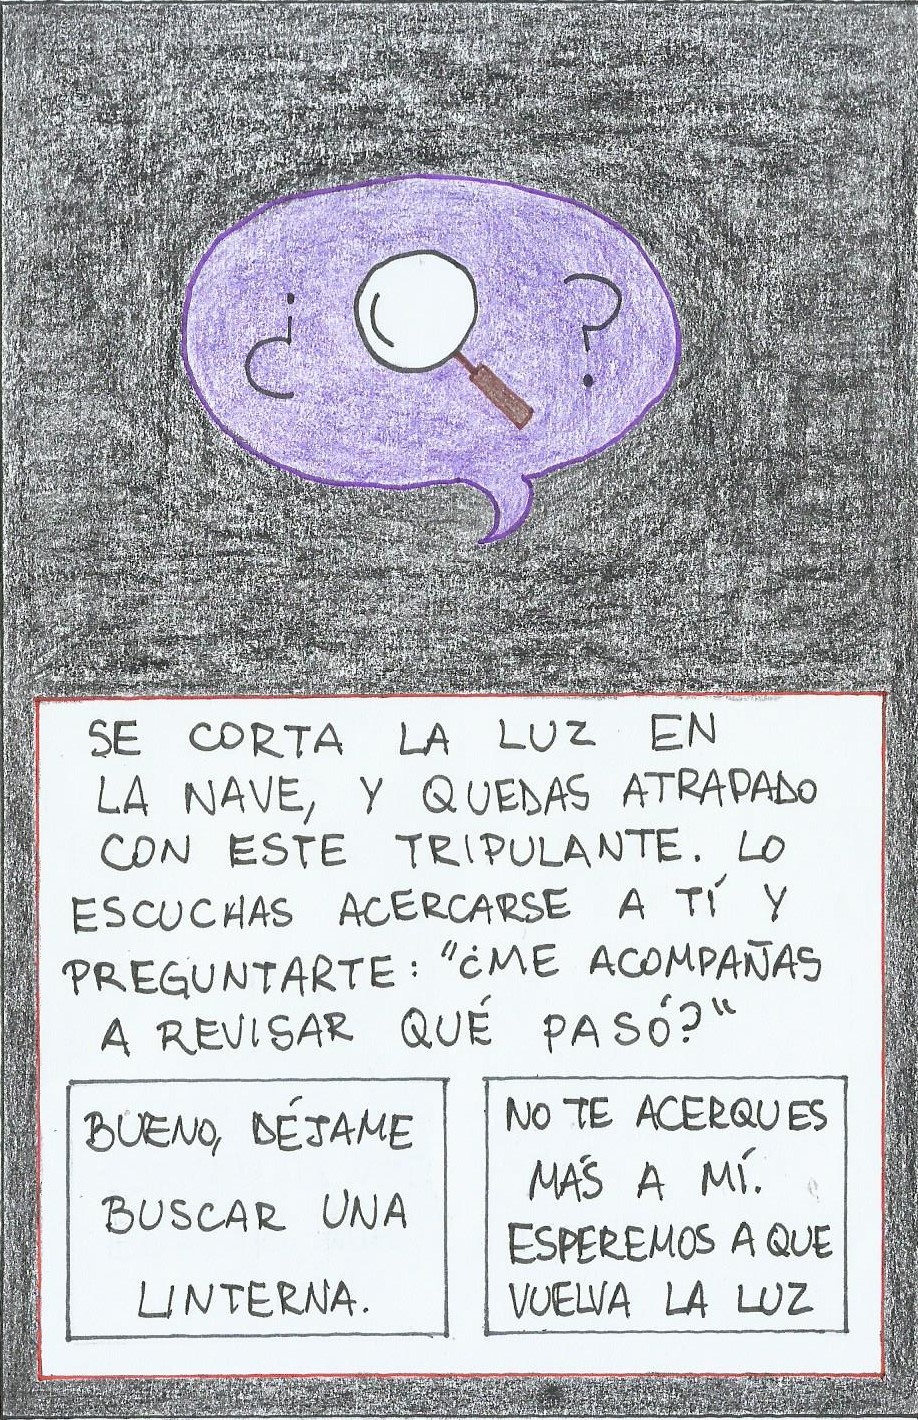 ¿ ?
SE CORTA LA LUZ EN
LA NAVE, Y QUEDAS ATRAPADO
CON ESTE TRIPULANTE. LO
ESCUCHAS ACERCARSE A TÍ Y
PREGUNTARTE: "¿ME ACOMPAÑAS
A REVISAR QUÉ PASÓ?"
BUENO, DÉJAME
BUSCAR UNA
LINTERNA.
NO TE ACERQUES
MÁS A MÍ.
ESPEREMOS A QUE
VUELVA LA LUZ